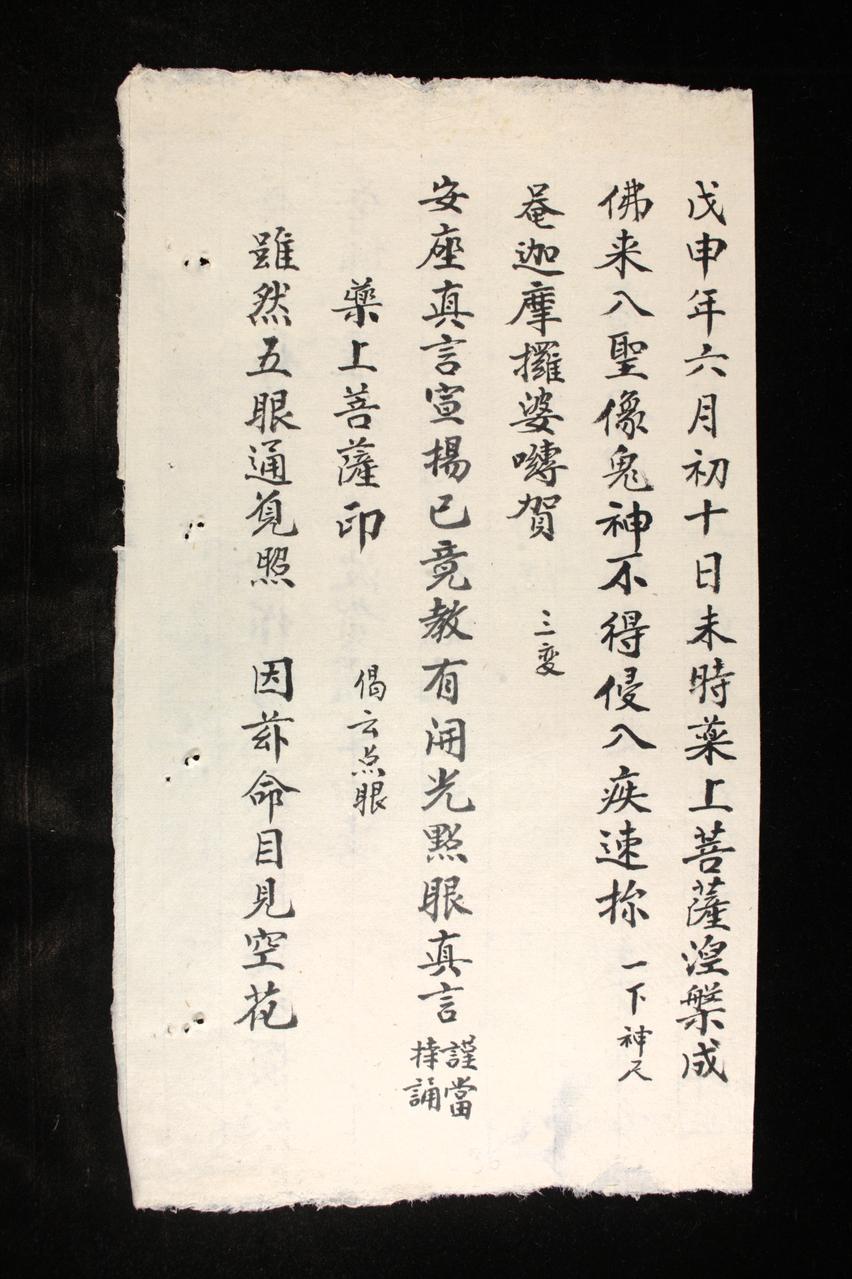 戊申年六月初十日未時薬上菩薩湼槃成
佛来入聖像鬼神不得侵入疾速捺 一下神尺
菴迦摩攞婆囀賀 三変
安座真言宣揚已竟教有開光點眼真言 謹當持誦
藥上菩薩印 偈云点眼
雖然五眼通覓照 因茲命目見空花